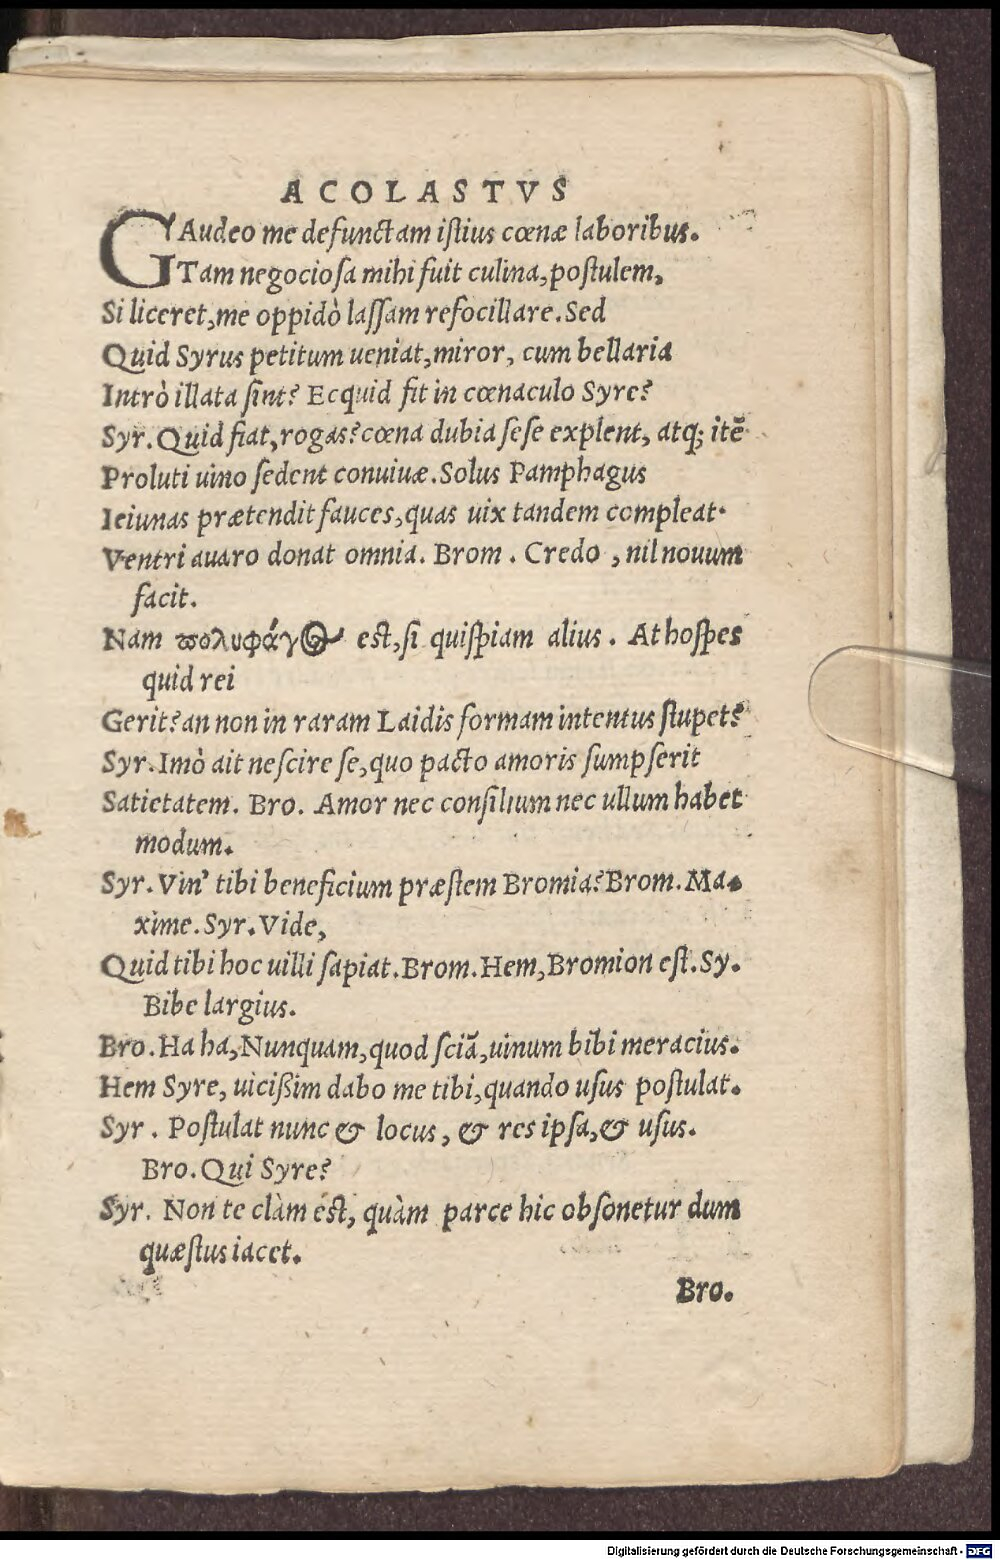 ACOLASTVS
GAudeo me defunctam istius cœnæ laboribus.
Tam negociosa mihi fuit culina, postulem,
Si liceret, me oppidò lassam refocillare. Sed
Quid Syrus petitum ueniat, miror, cum bellaria
Intrò illata sint? Ecquid fit in cœnaculo Syre?
Syr. Quid fiat, rogas? cœna dubia sese explent, atq; itē
Proluti uino sedent conuiuæ. Solus Pamphagus
Ieiunas prætendit fauces, quas uix tandem compleat.
Ventri auaro donat omnia. Brom. Credo, nil nouum
facit.
Nam πολυφάγος est, si quispiam alius. At hospes
quid rei
Gerit? an non in raram Laidis formam intentus stupet?
Syr. Imò ait nescire se, quo pacto amoris sumpserit
Satietatem. Bro. Amor nec consilium nec ullum habet
modum.
Syr. Vin' tibi beneficium præstem Bromia? Brom. Ma-
xime. Syr. Vide,
Quid tibi hoc uilli sapiat. Brom. Hem, Bromion est. Sy.
Bibe largius.
Bro. Ha ha, Nunquam, quod sciā, uinum bibi meracius.
Hem Syre, uicißim dabo me tibi, quando usus postulat.
Syr. Postulat nunc & locus, & res ipsa, & usus.
Bro. Qui Syre?
Syr. Non te clàm est, quàm parce hic obsonetur dum
quæstus iacet.
Bro.
Digitalisierung gefördert durch die Deutsche Forschungsgemeinschaft - DFG